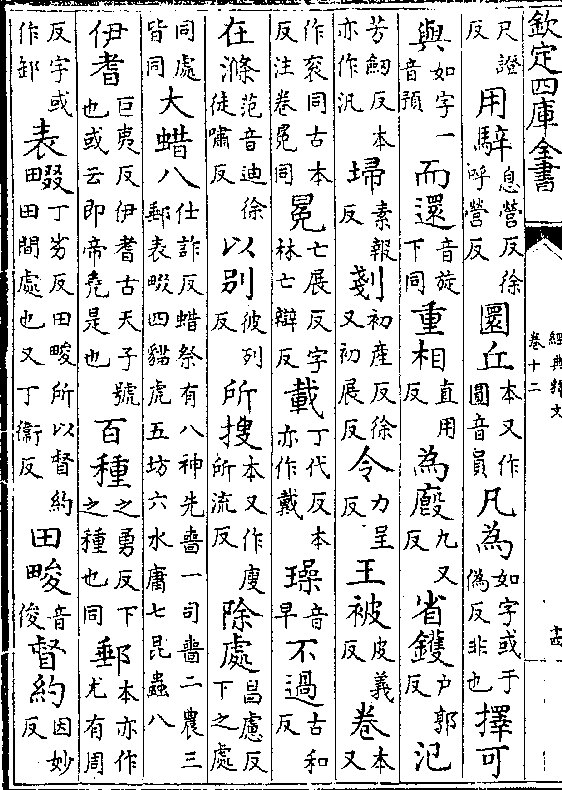 欽定四庫全書
經典釋文
卷十二
十四
尺證反用騂息營反徐呼營反圜丘本又作圓音員凡為如字或于偽反非也擇可
與如字一音預而還音旋下同重相直用反為廄九又反省鑊戶郭反汜
芳劒反本亦作汎埽素報反剗初產反徐又初展反令力呈反王被皮義反卷本又
作衮同古本反注卷冕同冕亡展反字林亡辯反載丁代反本亦作戴璪音早不過古和反
在滌范音迪徐徒嘯反以别彼列反所搜本又作廋所流反除處昌慮反下之處
同處皆同大蜡八仕詐反蜡祭有八神先嗇一司嗇二農三郵表畷四貓虎五坊六水庸七昆蟲八
伊耆巨夷反伊耆古天子號也或云即帝堯是也百種之勇反下之種也同郵本亦作尤有周
反字或作卸表畷丁劣反田畯所以督約田田間處也又丁衛反田畯音俊督約因妙反